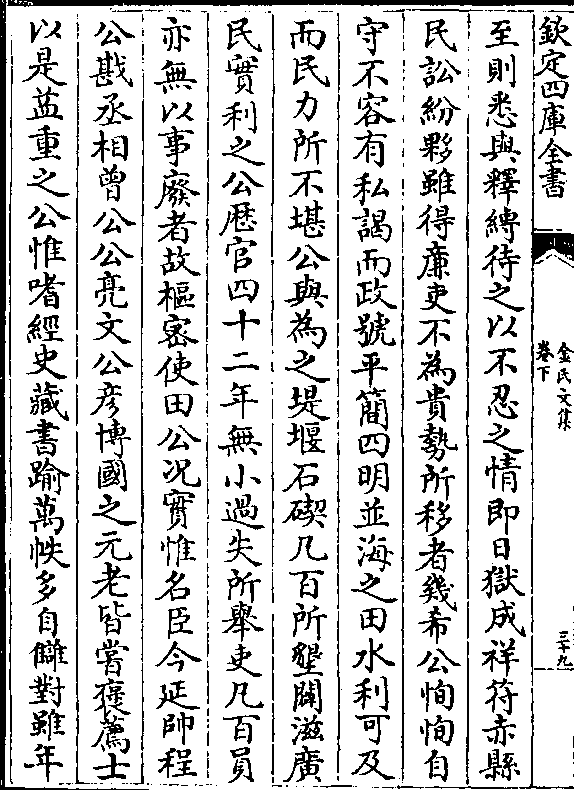 欽定四庫全書
金氏文集
卷下
三十九
至則悉與釋縛待之以不忍之情即日獄成祥符赤縣
民訟紛夥雖得亷吏不為貴勢所移者幾希公恂恂自
守不容有私謁而政號平簡四明並海之田水利可及
而民力所不堪公與為之堤堰石碶凡百所墾闢滋廣
民實利之公歴官四十二年無小過失所舉吏凡百員
亦無以事廢者故樞密使田公况實惟名臣今延帥程
公戡丞相曾公公亮文公彦博國之元老皆嘗褒薦士
以是益重之公惟嗜經史藏書踰萬帙多自讎對雖年